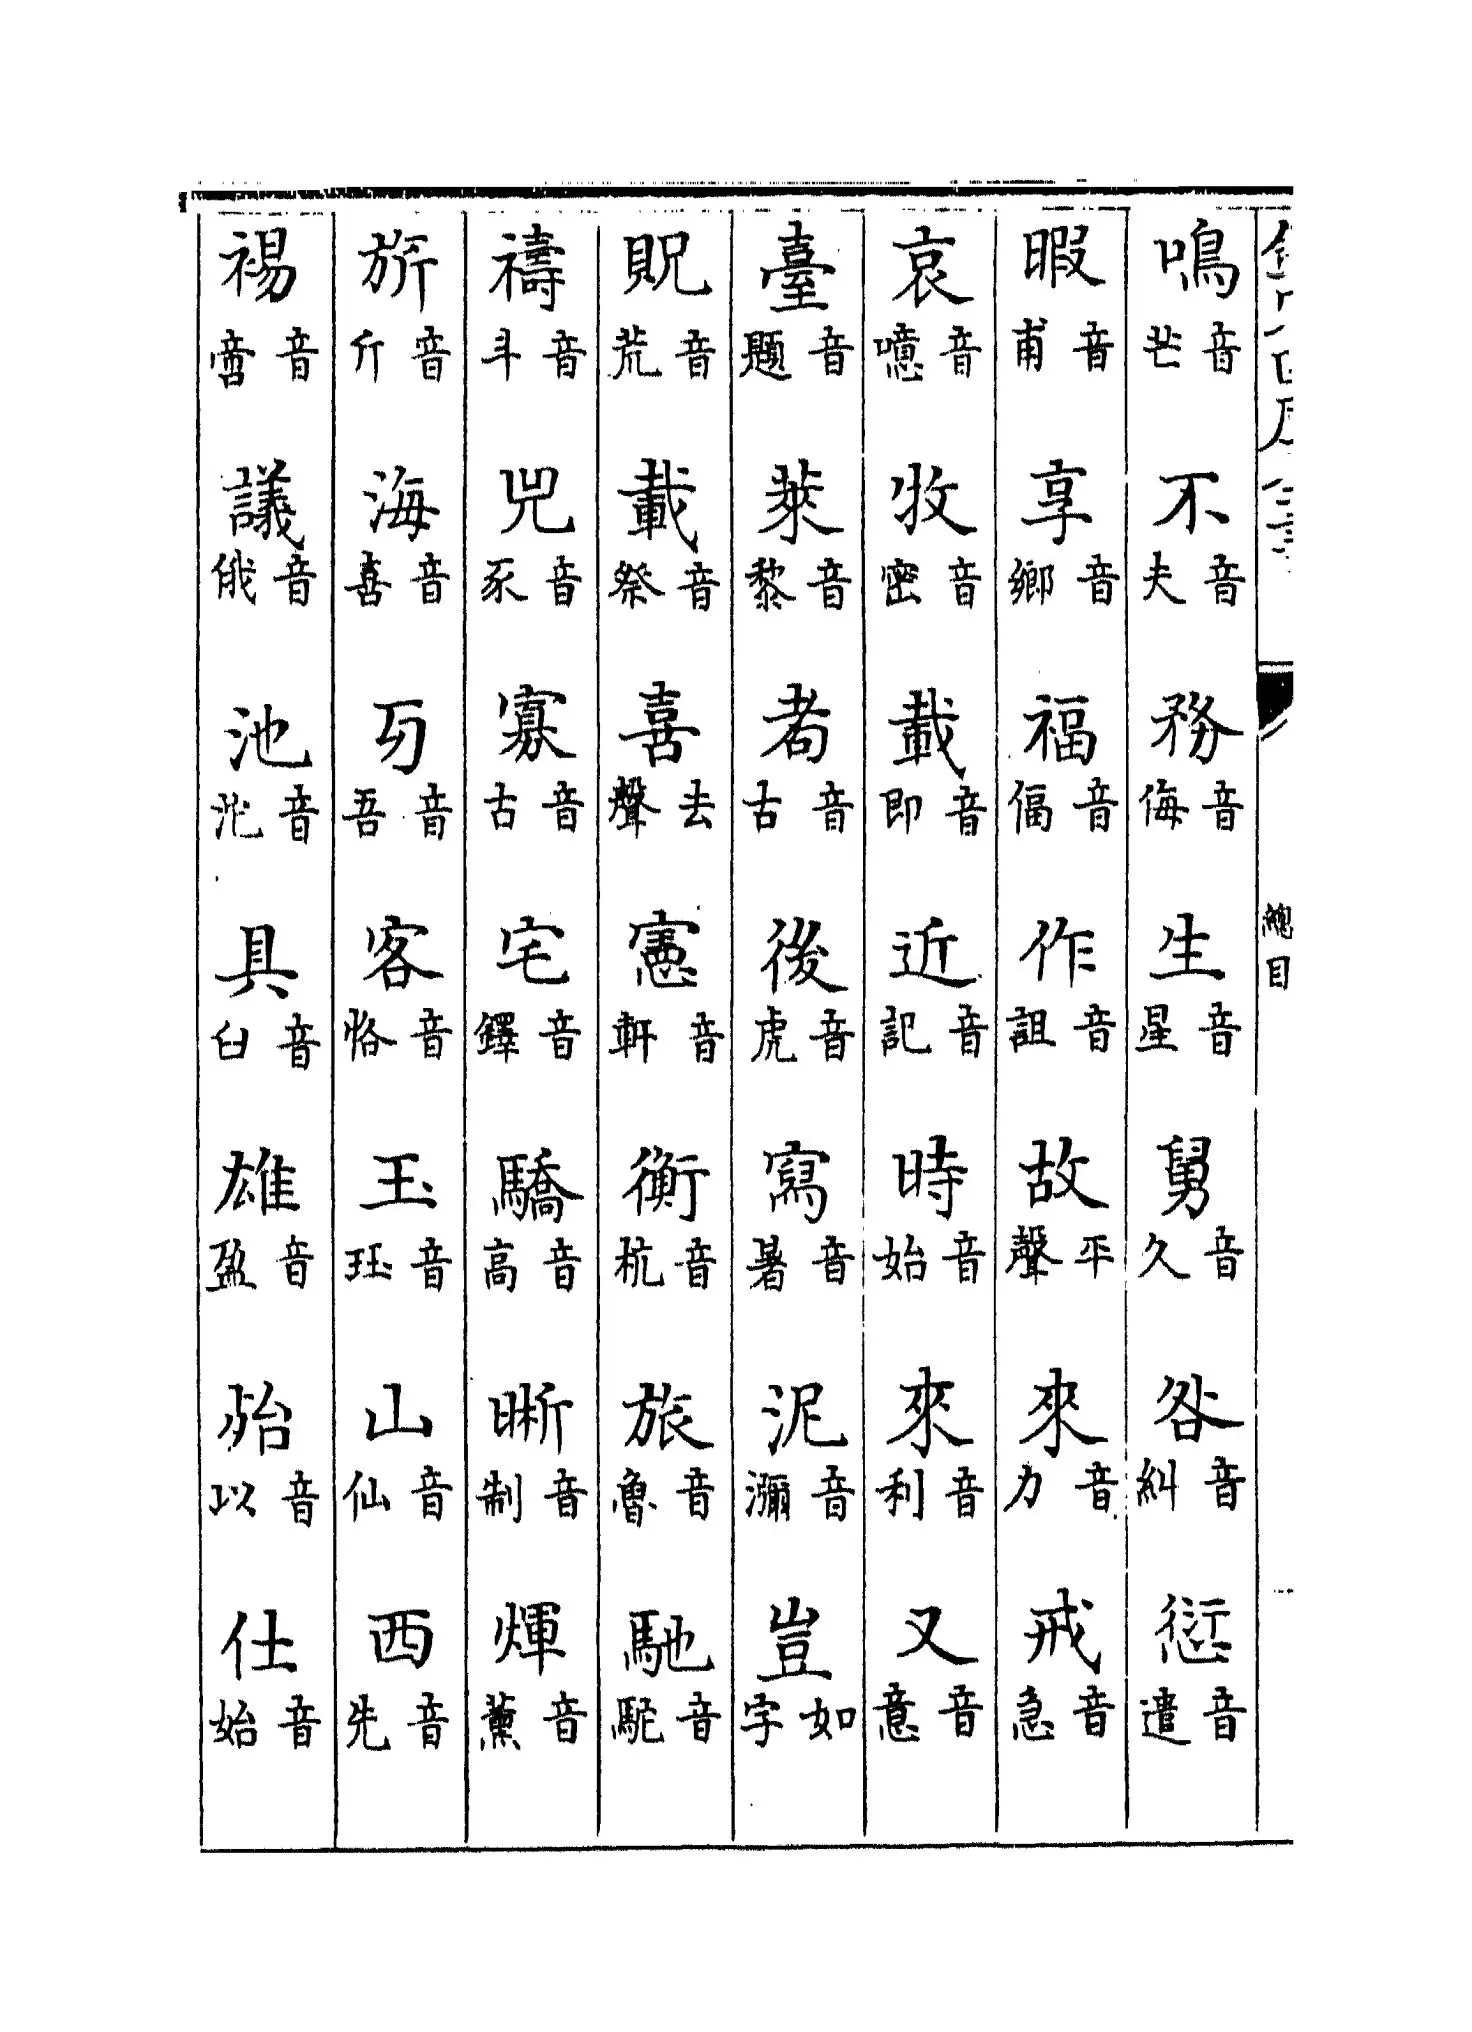 鳴音芒 不音夫 務音侮 生音星 舅音久 咎音糾 愆音遣
暇音甫 享音鄉 福音偪 作音詛 故平聲 來音力 戒音急
哀音噫 牧音密 載音即 近音記 時音始 來音利 又音意
臺音題 萊音黎 者音古 後音虎 寫音暑 泥音瀰 豈如字
貺音荒 載音祭 喜去聲 憲音軒 衡音杭 旅音魯 馳音駝
禱音斗 兕音豕 寡音古 宅音鐸 驕音高 晣音制 煇音薰
旂音斤 海音喜 客音恪 玉音珏 山音仙 西音先
裼音啻 議音俄 池音沱 具音臼 雄音盈 殆音以 仕音始
總目